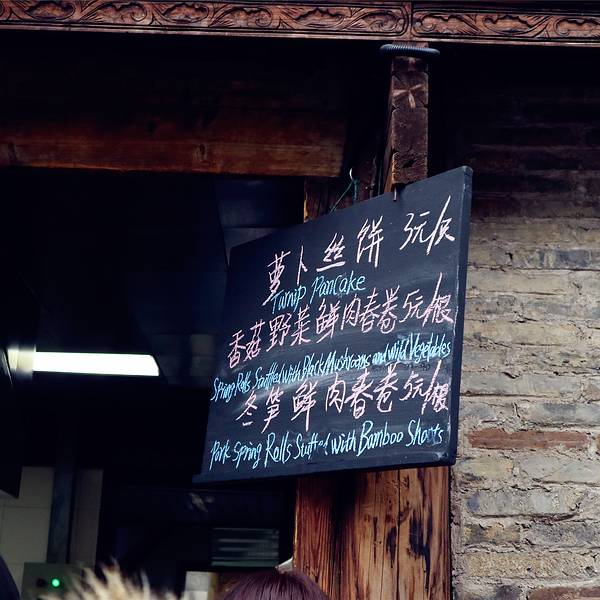 萝卜丝饼 3元/只
Turnip Pancake
香菇野菜鲜肉春卷 5元/根
Spring Rolls Stuffed with Black Mushrooms and wild Vegetables
冬笋鲜肉春卷 5元/根
Pork Spring Rolls Stuffed with Bamboo Shoots